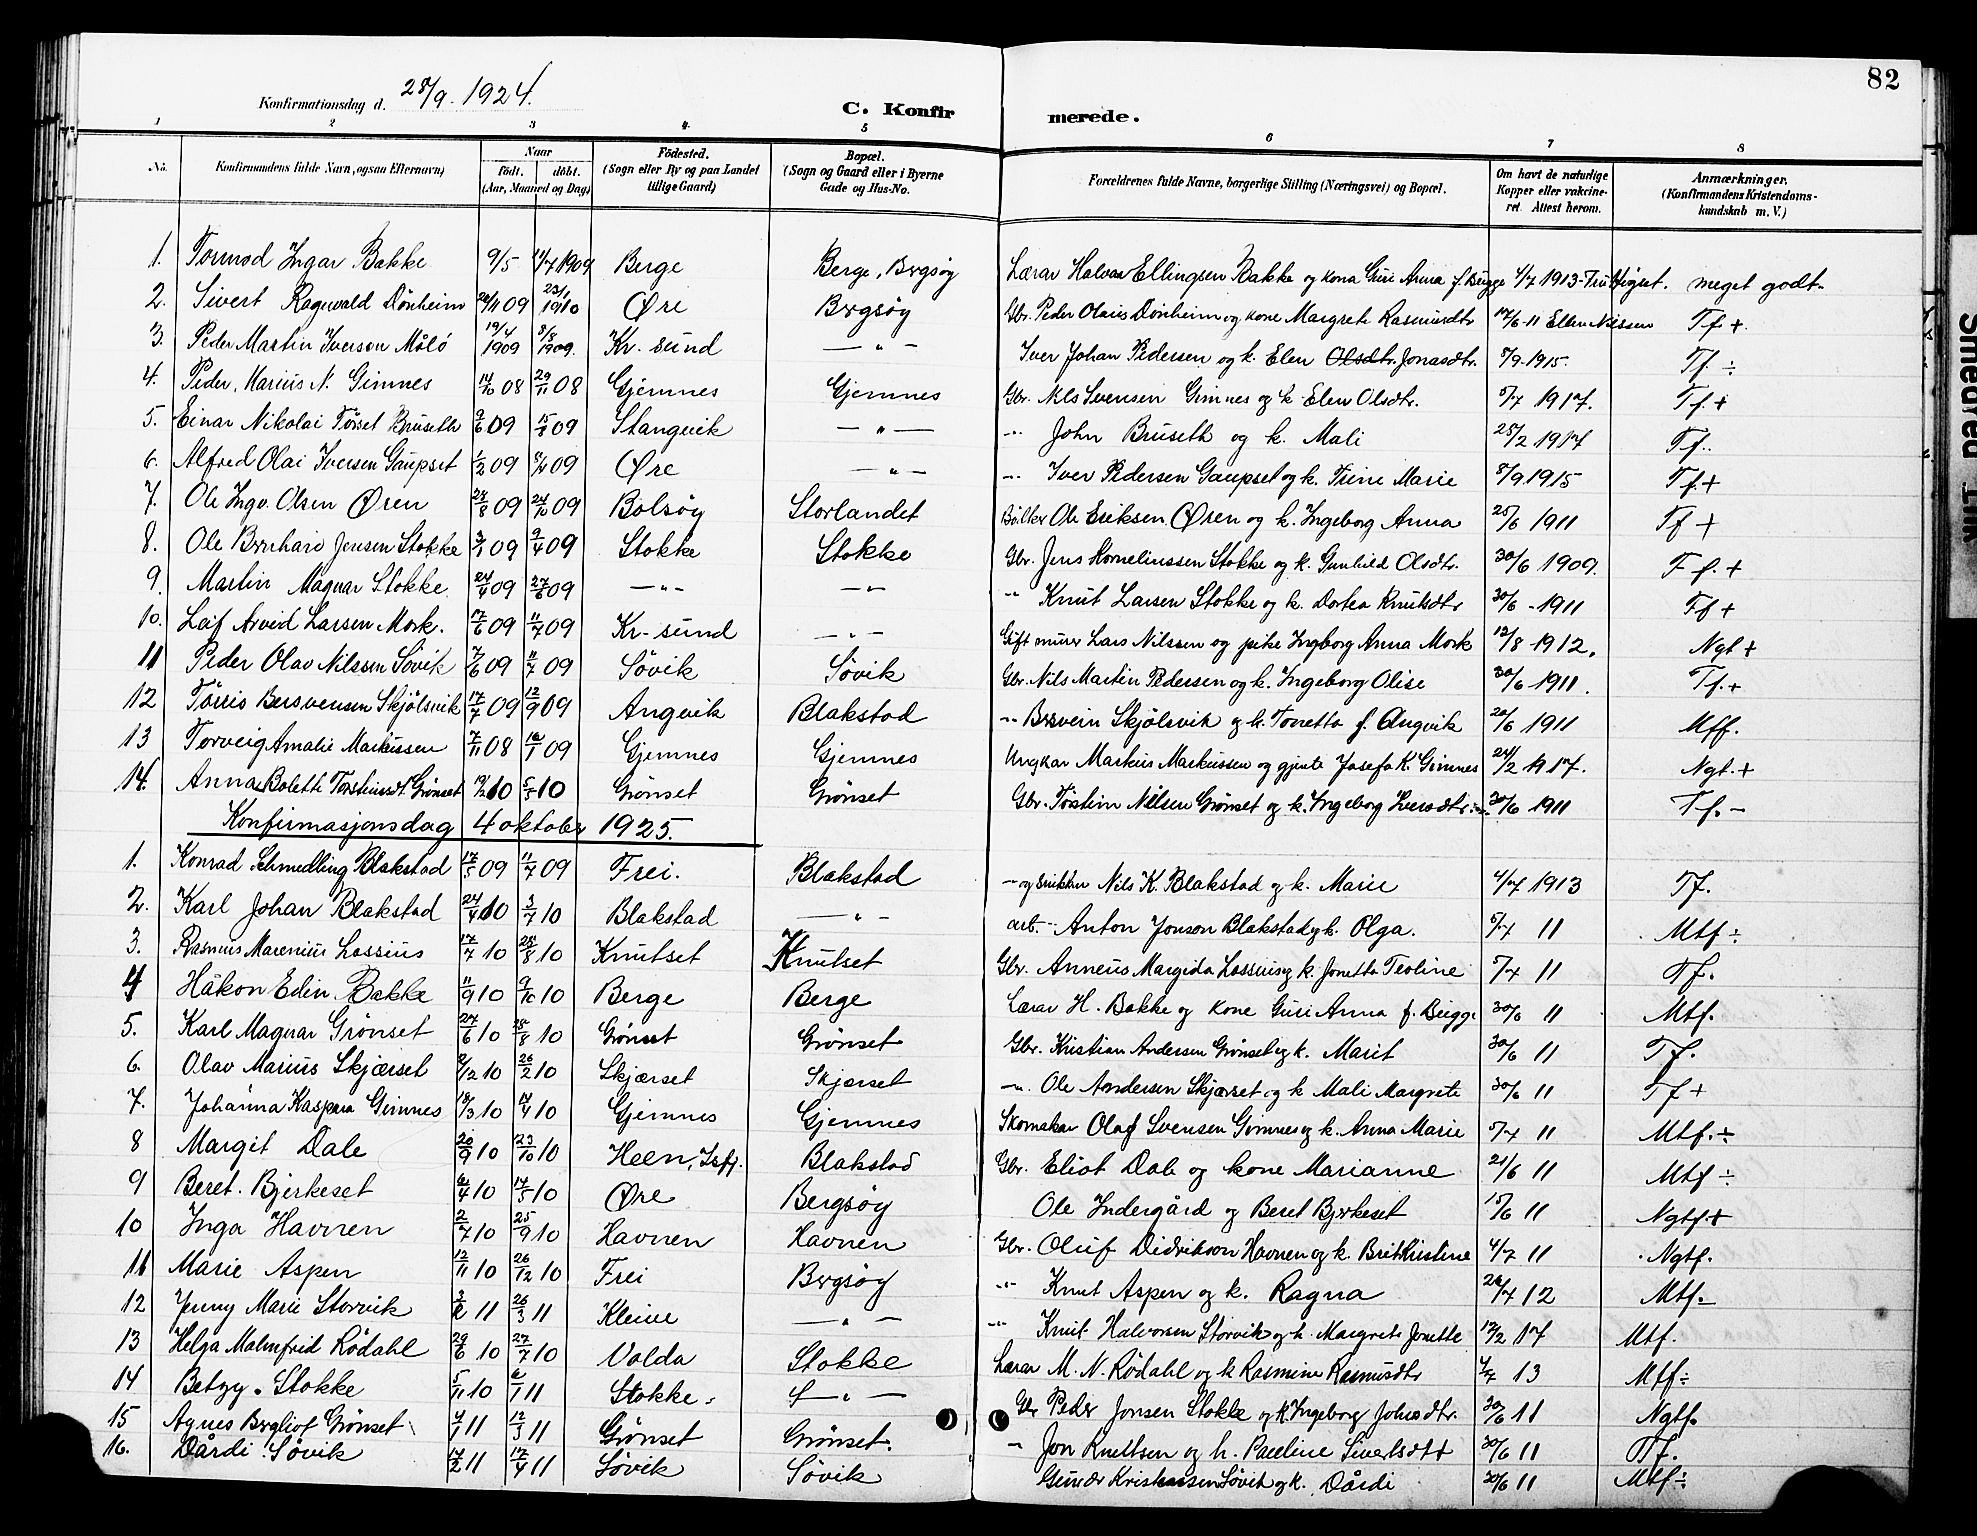 82
Konfirmationsdag d. 28/9. 1924.
C. Konfirmerede.
1 2 3 4 5 6 7 8
No. Konfirmandens fulde Navn, ogsaa Efternavn) Naar født. døbt. (Aar, Maaned og Dag) Fødested. (Sogn eller By og paa Landet tillige Gaard) Bopæl. (Sogn og Gaard eller i Byerne Gade og Hus-No. Forældrenes fulde Navne, borgerlige Stilling (Næringsvei) og Bopæl. Om havt de naturlige Kopper eller vakcineret. Attest herom. Anmærkninger. (Konfirmandens Kristendomskundskab m. V.)
1. Tormod Ingar Bakke 9/5 11/7 1909 Berge Berge, Bergsøy Lærar Halvar Ellingsen Bakke og kona Guri Anna f. Bugge 4/7 1913 meget godt
2. Sivert Ragnvald Dönheim 26/11 09 23/1 1910 Øre Bergsøy Gbr. Peder Olaus Dönheim og kone Margrete Rasmusdtr 17/6-11 Ellen Nilssen Tf +.
3. Peder Martin Iversen Målö 19/4 1909 8/8 1909. Kr. sund —"— Iver Johan Pedersen og k. Elen Olsdtr. Jonasdtr. 5/9-1915. Tf. ÷
4. Peder, Marius N. Gimnes 14/10 08 29/11 08 Gjemnes Gjemnes Gbr. Nils Svensen Gimnes og k Elen Olsdtr. 5/7 1917. Tf. +
5. Einar Nikolai Törset Bruseth 9/6 09 15/8 09 Stangvik —"— -"- John Bruseth og k. Mali 25/2 1917 Tf.
6. Alfred Olai Iversen Gaupset 1/2 09 5/4 09 Øre —"— -"- Iver Pedersen Gaupset og k. Trine Marie 8/9 1915 Tf. +
7. Ole Ingv. Olsen Øren 28/8 09 24/10 09 Bolsöy Storlandet Ole Eriksen Øren og k. Ingeborg Anna 25/6 1911 Tf +
8. Ole Bernhard Jensen Stokke 3/1 09 9/4 09 Stokke Stokke Gbr. Jens Kornelius­sen Stokke og k. Gunhild Olsdtr. 30/6 1909. Tf. +
9. Martin Magnar Stokke 24/4 09 27/6 09 —"— —"— " Knut Larsen Stokke og k. Dortea Knutsdtr 30/6 - 1911 Tf +
10. Leif Arvid Larsen Mork. 17/6 09 11/7 09 Kr-sund —"— Gift murer Lars Nilssen og pike Ingborg Anna Mork 12/8 1912. Ngt +
11 Peder Olav Nilssen Sövik 7/6 09 11/7 09 Sövik Sövik Gbr. Nils Martin Pedersen og k. Ingeborg Olise 30/6 1911. Tf. +
12 Törris Bersvensen Skjölsvik 17/7 09 12/9 09 Angvik Blakstad -"- Bersvein Skjölsvik og k. Tonetta f. Angvik 20/6 1911 Mtf.
13 Torveig Amalie Markussen 7/11 08 10/1 09 Gjemnes Gjemnes Ungkar Markus Markussen og gjente Josefa K. Gimnes 24/2 1917. Ngt. +
14. Anna Bolette Torsteinsdt. Grönset 5/5 10 Grönset Grönset Gbr. Tostein Nilsen Grönset og k. Ingeborg Iversdtr. 30/6 1911 Tf. -
Konfirmasjonsdag 4 oktober 1925.
1. Konrad Schmedling Blakstad 17/5 09 11/7 09 Frei. Blakstad - og snikker Nils K. Blakstad og k. Marie 4/7 1913 Tf.
2. Karl Johan Blakstad 24/4 10 3/7 10 Blakstad —"— arb. - Anton Jonson Blakstad og k. Olga. 5/7 11 Mtf ÷
3. Rasmus Marenius Lossius 17/7 10 28/8 10 Knutset Knutset Gbr. Anneus Margida Lossius og k. Jonetta Teoline 5/7 11 Tf.
4 Håkon Edin Bakke 11/9 10 9/10 10 Berge Berge Lærar H. Bakke og kone Guri Anna f. Bugge 30/6 11 Mtf.
5. Karl Magnar Grönset 27/6 10 28/8 10 Grönset Grönset Gbr. Kristian Andersen Grönset og k. Marit 30/6 11 Tf.
6. Olav Marius Skjærset 2/12 10 26/2 10 Skjærset Skjærset -"- Ole Andersen Skjærset og k Mali Margrete 30/6 11 Tf +
7. Johanna Kaspara Gimnes 13/3 10 17/4 10 Gjemnes Gjemnes Skomakar Olaf Svensen Gimnes og k. Anna Marie 5/7 11 Mtf. ÷
8 Margit Dale 20/9 10 23/10 10 Heen, Isfj. Blakstad Gbr. Eliot Dale og kone Marianne 21/6 11 Mtf ÷
9 Beret. Bjerkeset 6/4 10 17/5 10 Øre Bergsöy Ole Indergård og Beret Bjerkeset 15/6 11 Ngtf. +
10 Inga Havnen 2/7 10 25/9 10 Havnen Havnen Gbr. Oluf Didrikson Havnen og k. Brit Kristine 4/7 11 Ngtf.
11 Marie Aspen 12/11 10 26/12 10 Frei Bergsöy -"- Knut Aspen og k. Ragna 20/7 12 Mtf. -
12 Jenny Marie Storvik 3/2 11 26/3 11 Kleive —"— -"- Knut Halvorsen Storvik og k. Margrete Jonette 12/2 17 Mtf.
13 Helga Malmfrid Rödahl 29/6 10 27/7 10 Volda Stokke Lærar M. N. Rödahl og k Rasmine Rasmusdtr 4/7 13 Mtf ÷
14 Betzy. Stokke 5/11 10 6/1 11 Stokke —"— Gbr Peder Jonsen Stokke og k. Ingeborg Johnsdtr. 30/6 11 Ngtf.
15 Agnes Bergliot Grönset 4/1 11 12/3 11 Grönset Grönset. " Jon Knutsen og k. Pauline Sivertsdtr 30/6 11 Tf.
16. Dårdi Sövik 14/2 11 17/4 11 Sövik Sövik Gunder Kristiansen Sövik og k. Dårdi 30/6 11 Mtf ÷